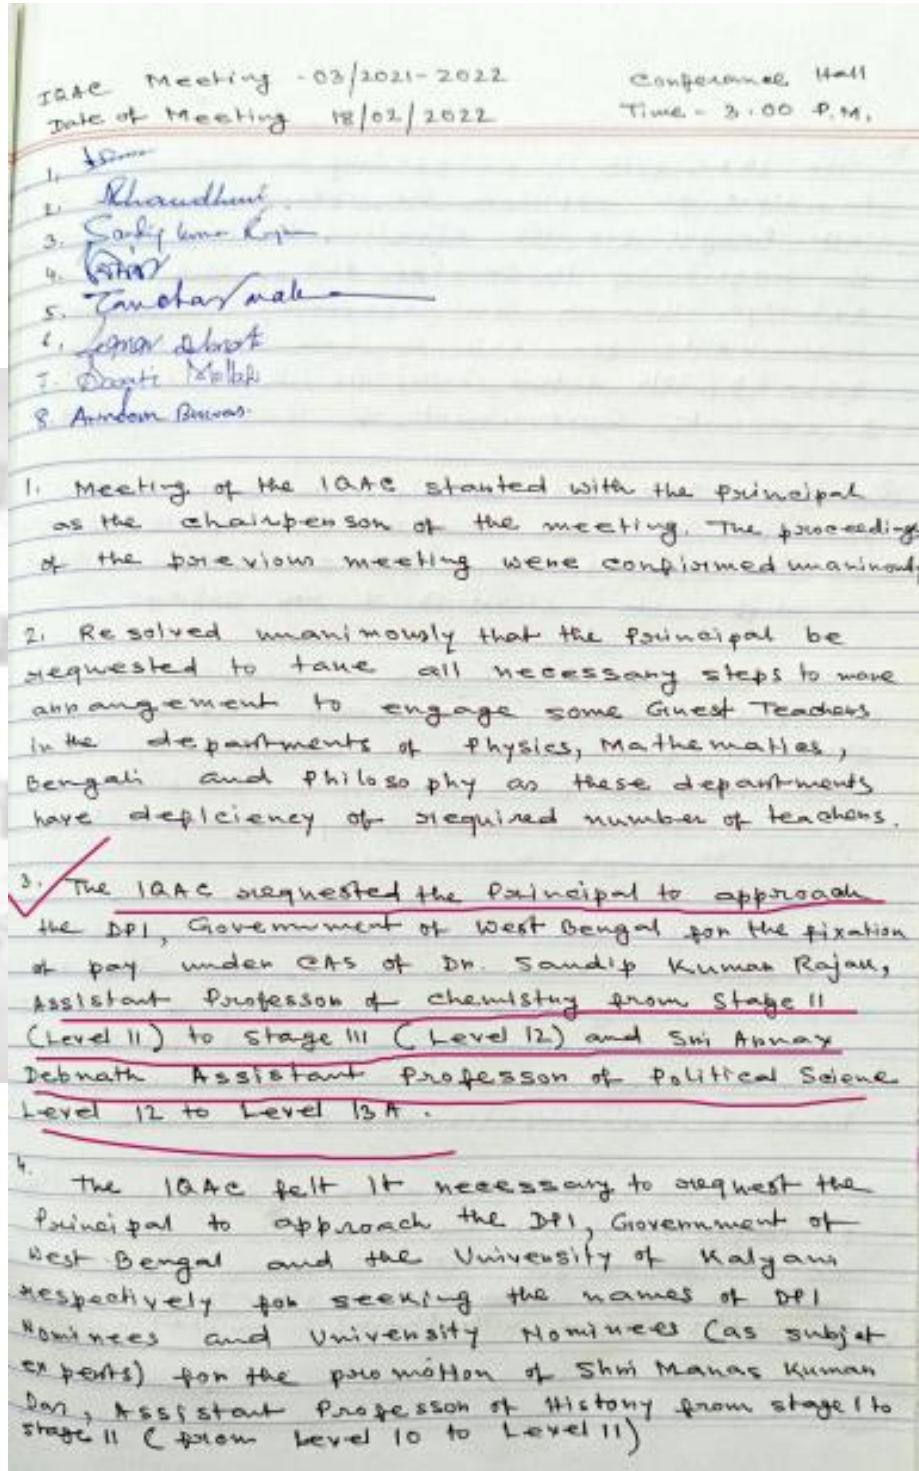 IQAC Meeting - 03/2021-2022 Conferance Hall
Date of Meeting 18/02/2022 Time - 3.00 P.M.
1.
2. RChaudhuri
3. Sandip Kumar Rajak
4.
5.
6. Debnath
7. Mollah
8. Arindam Biswas.
1. Meeting of the IQAC started with the Principal
as the chairperson of the meeting. The proceedings
of the previous meeting were confirmed unanimously
2. Resolved unanimously that the Principal be
requested to take all necessary steps to make
arrangement to engage some Guest Teachers
in the departments of Physics, Mathematics,
Bengali and Philosophy as these departments
have deficiency of required number of teachers.
3. The IQAC requested the Principal to approach
the DPI, Government of West Bengal for the fixation
of pay under CAS of Dr. Sandip Kumar Rajak,
Assistant Professor of Chemistry from Stage II
(Level 11) to Stage III (Level 12) and Sri Arnav
Debnath Assistant Professor of Political Sciene
Level 12 to Level 13A.
4.
The IQAC felt it necessary to request the
Principal to approach the DPI, Government of
West Bengal and the University of Kalyani
respectively for seeking the names of DPI
Nominees and University Nominees (as subjet
experts) for the promotion of Shri Manas Kumar
Das, Assistant Professor of History from stage I to
stage II (from Level 10 to Level 11)